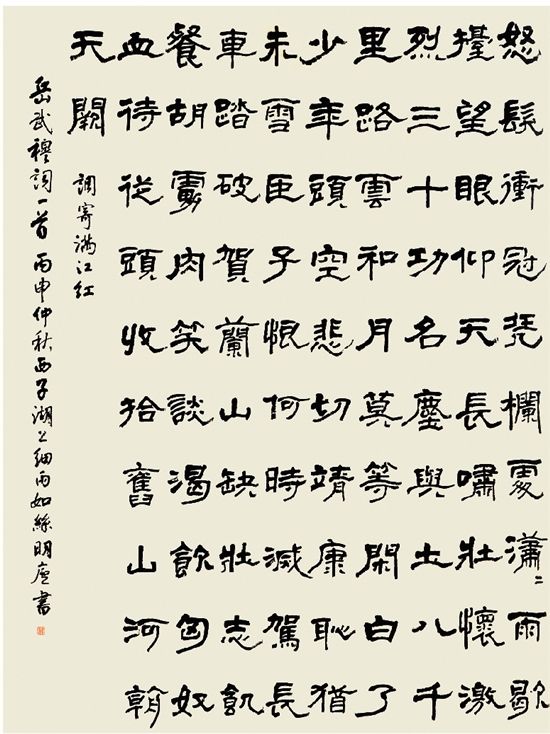 怒髮衝冠凭欄處瀟〻雨歇
擡望眼仰天長嘯壯懷激
烈三十功名塵與土八千
里路雲和月莫等閑白了
少年頭空悲切靖康恥猶
未雪臣子恨何時滅駕長
車踏破賀蘭山缺壯志飢
餐胡虜肉笑談渴飲匈奴
血待從頭收拾舊山河朝
天闕
調寄滿江紅
岳武穆詞一首丙申仲秋西子湖上細雨如絲明廬書